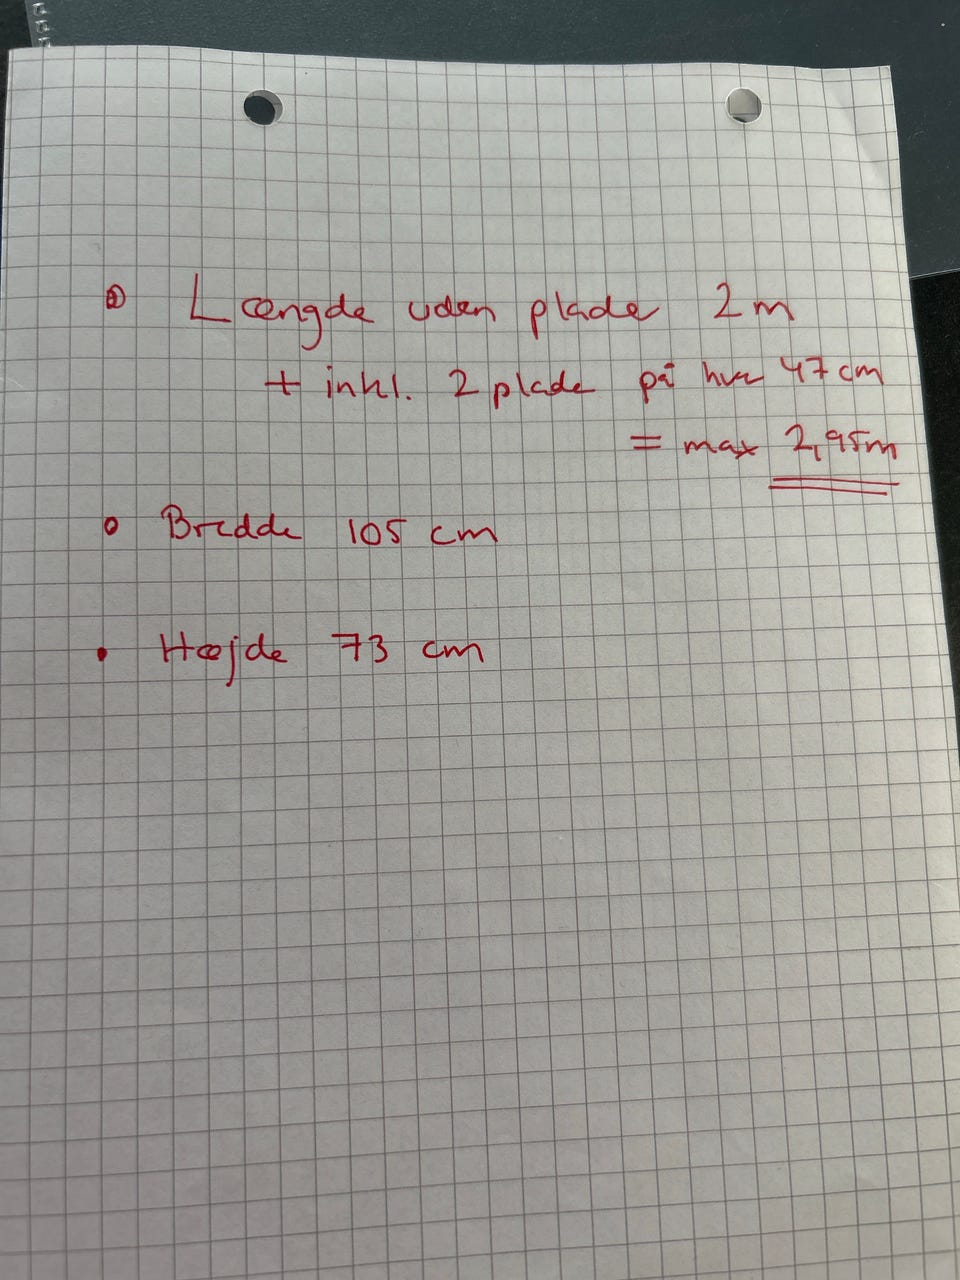 Længde uden plade 2m
+ inkl. 2 plade på hver 47 cm
= max 2,95m
Bredde 105 cm
Højde 73 cm